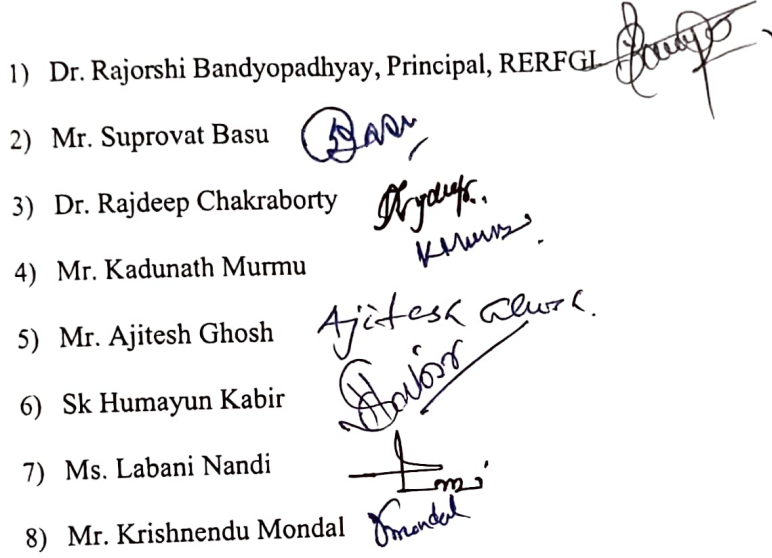 1) Dr. Rajorshi Bandyopadhyay, Principal, RERFGI
2) Mr. Suprovat Basu Basu
3) Dr. Rajdeep Chakraborty
4) Mr. Kadunath Murmu
5) Mr. Ajitesh Ghosh Ajitesh Ghosh.
6) Sk Humayun Kabir
7) Ms. Labani Nandi
8) Mr. Krishnendu Mondal Kmondal